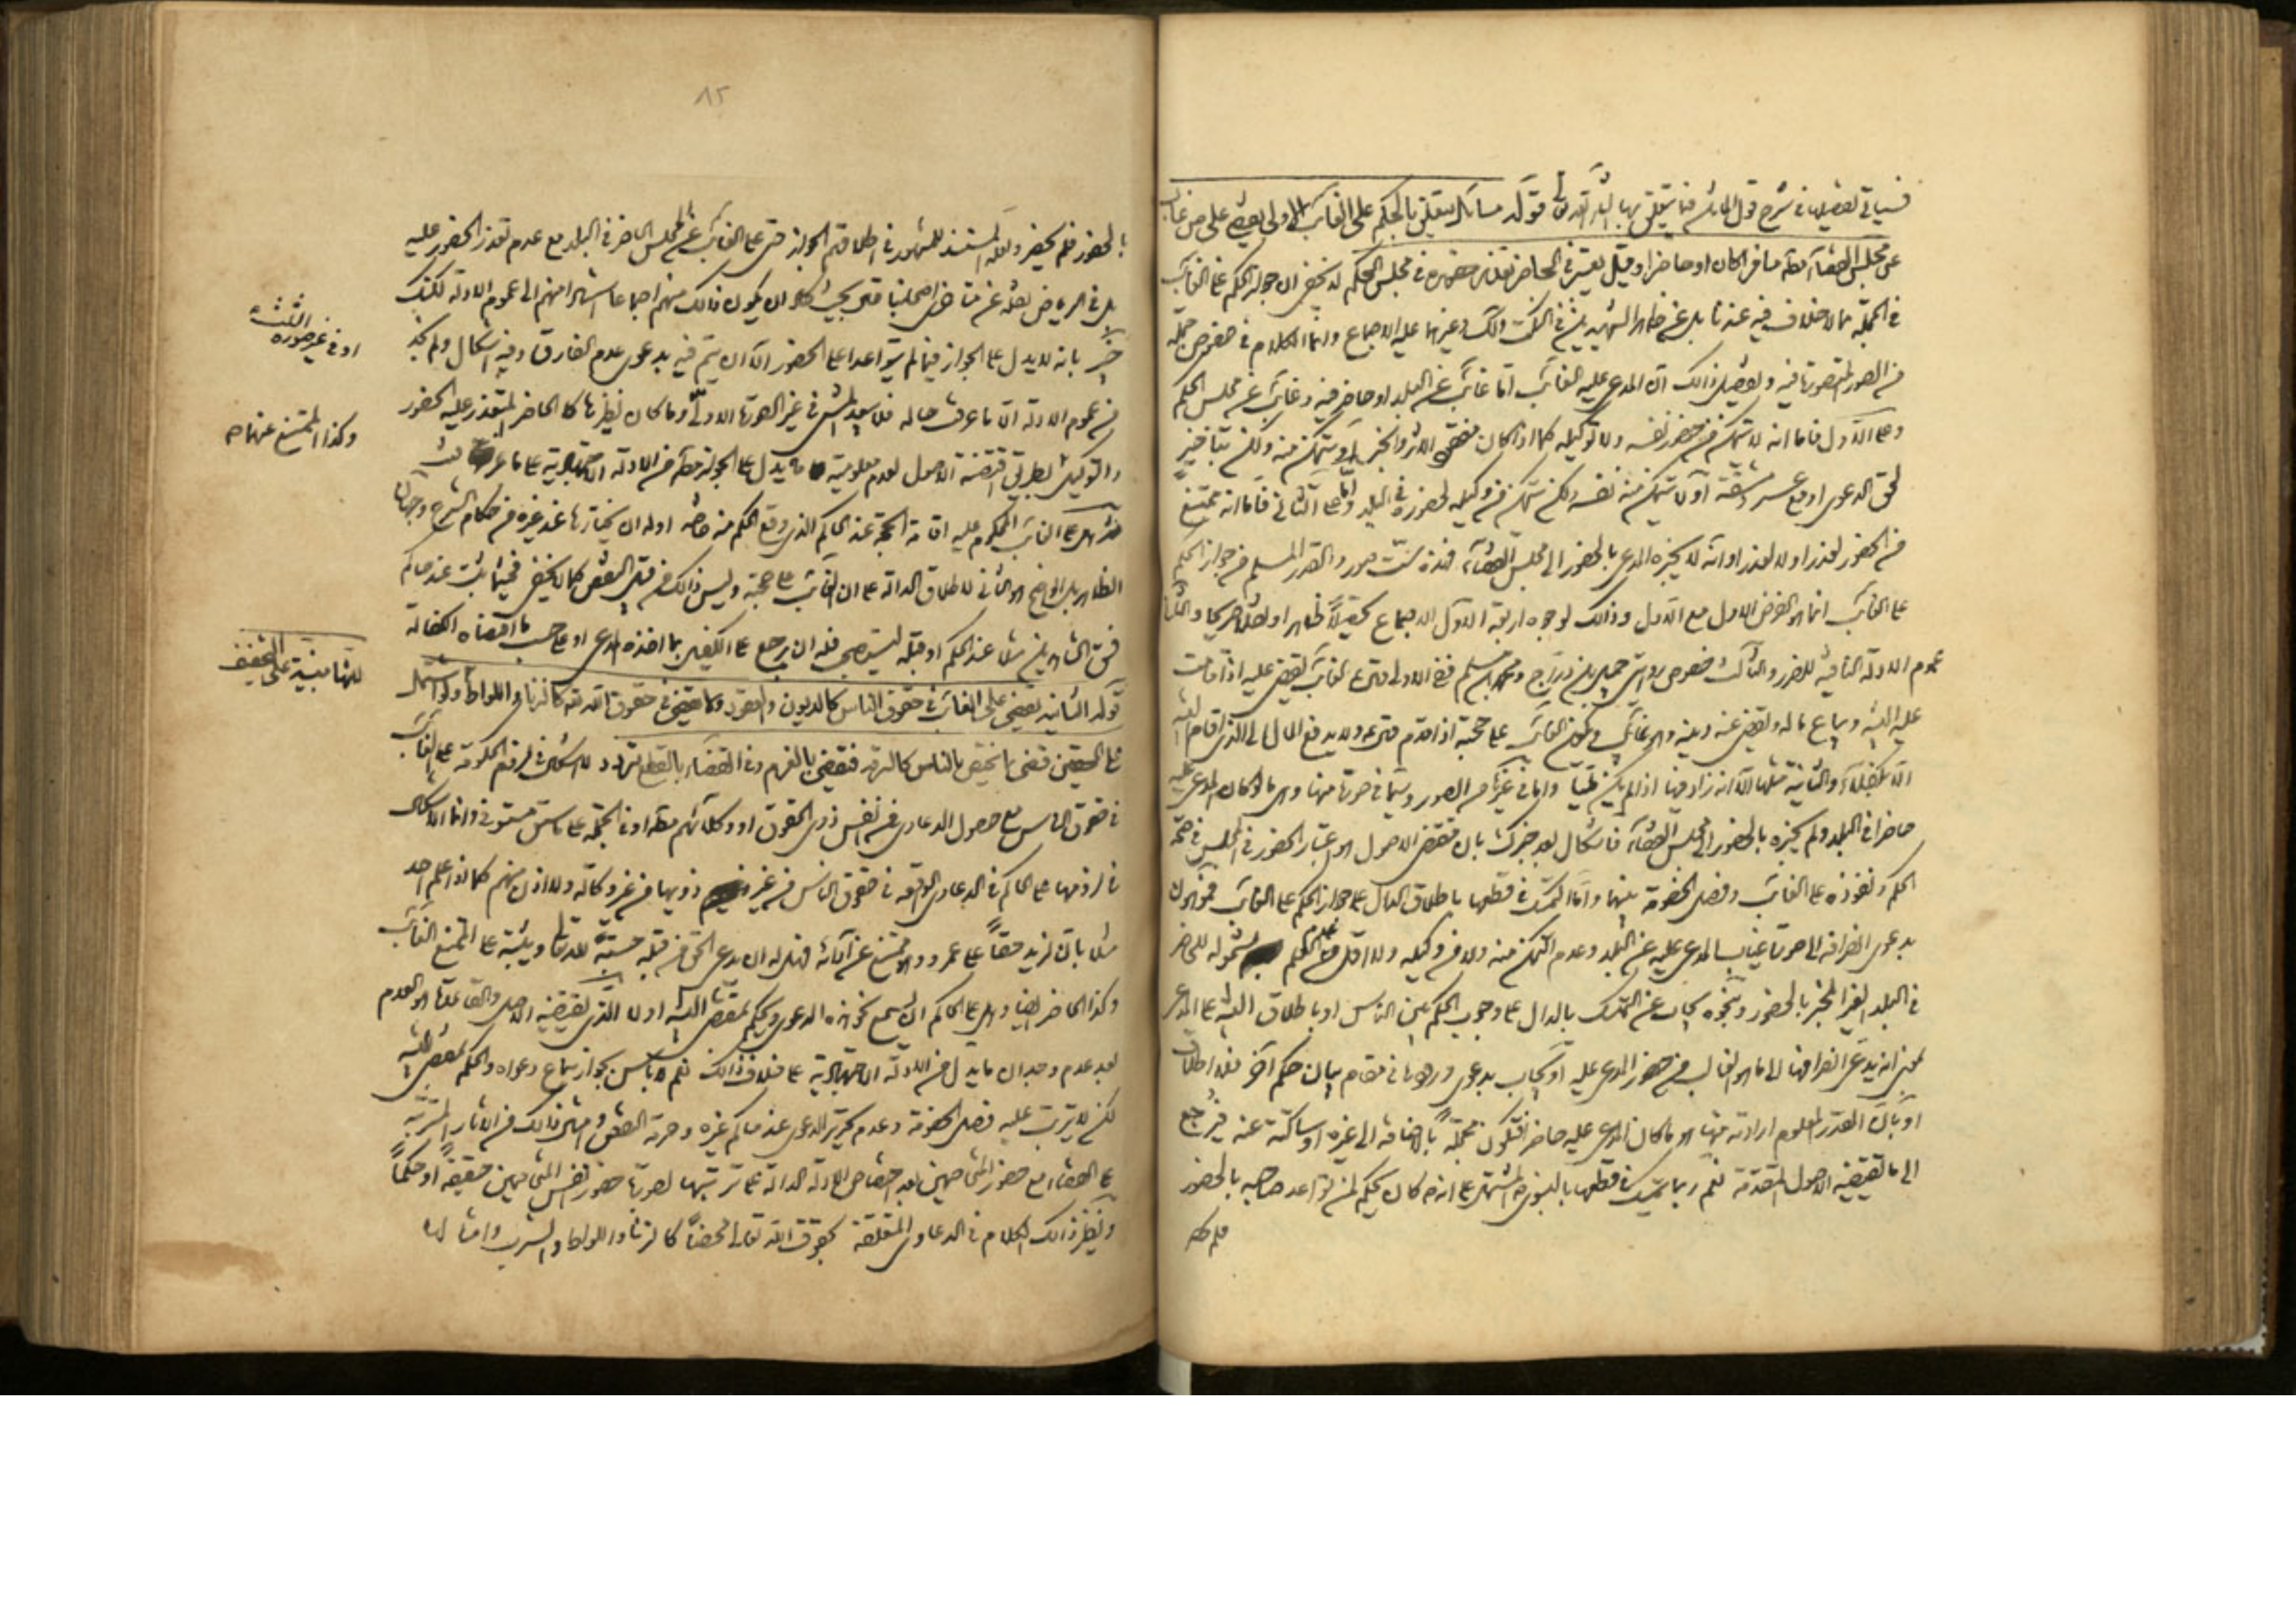 فسياتي تفصيلها في شرح قول الماتن فيما يتعلق بها انشاء الله تعالى قوله مسائل تتعلق بالحكم على الغائب الاولى يقضى على من غاب
عن مجلس القضاء مطلقا مسافرا كان او حاضرا وقيل يعتبر في الحاضر تعذر حضوره في مجلس الحكم لا يخفى ان جواز الحكم على الغائب
في الجملة مما لا خلاف فيه عندنا بل عن ظاهر الشهيدين في النكت ولك وغيرهما عليه الاجماع وانما الكلام في خصوص جملة
من الصور المتصورة فيه وتفصيل ذلك ان المدعى عليه الغائب اما غائب عن البلد او حاضر فيه وغائب عن مجلس الحكم
وعلى الاول فاما انه لا يتمكن من حضور نفسه ولا توكيله كما اذا كان منقطع الاثر والخبر او يتمكن منه ولكن بتاخير
لحق الدعوى او مع عسر ومشقة او لا يتمكن منه نفسه ولكن يتمكن من وكيله لحضوره في البلد واما على الثاني فاما انه ممتنع
من الحضور لعذر او لا لعذر او انه لا يخبره المدعي بالحضور الى مجلس القضاء فهذه ست صور والقدر المسلم من جواز الحكم
على الغائب انما هو الفرض الاول مع الاول وذلك لوجوه اربعة الاول الاجماع تحصيلا ظاهرا ونقلا صريحا والثاني
عموم الادلة النافية للضرر والثالث خصوص روايتي جميل بن دراج ومحمد بن مسلم ففي الاولى قال الغائب يقضى عليه اذا قامت
عليه البينة ويباع ماله ويقضى عنه دينه وهو غائب ويكون الغائب على حجته اذا قدم قال ولا يدفع المال الى الذي اقام البينة
الا بكفلاء والثانية مثلها الا انه زاد فيها اذا لم يكن مليا واما في غيره من الصور وسيما في صورتها منها وهي ما لو كان المدعى عليه
حاضرا في البلد ولم يخبره بالحضور الى مجلس القضاء فاشكال بعد خبرك بان مقتضى الاصول هو اعتبار الحضور في المجلس في صحة
الحكم ونفوذه على الغائب وفصل الخصومة بينهما واما التمسك في قطعها باطلاق الدال على جواز الحكم على الغائب فموهون
بدعوى انصرافه الى صورة غياب المدعى عليه عن البلد وعدم التمكن منه ولا من وكيله ولا اقل من عدم العلم بشموله للحاضر
في البلد الغير المخبر بالحضور وبنحوه يجاب عن التمسك بالدال على وجوب الحكم بين الناس او باطلاق البينة على المدعي
بمعنى انه يدعى انصرافها الى ما هو الغالب من حضور المدعى عليه او يجاب بدعوى ورودها في مقام بيان حكم آخر فلا اطلاق
او بان القدر المعلوم ارادته منها هو ما كان المدعى عليه حاضرا فتكون مجملة بالاضافة الى غيره او ساكتة عنه فيرجع
الى ما تقتضيه الاصول المتقدمة نعم ربما يتمسك في قطعها بالنبوي المشتمل على انه كان يحكم لمن تواعد صاحبه بالحضور
فلم يحضر
٨٢
بالحضور فلم يحضر ولعله المستند للمشهور في اطلاقهم الجواز حتى على الغائب عن المجلس الحاضر في البلد مع عدم تعذر الحضور عليه
بل في الرياض نقله عن متاخري اصحابنا قال بحيث كاد ان يكون ذلك منهم اجماعا مشيرا منهم الى عموم الادلة لكنك
خبير بانه لا يدل على الجواز فيما لم يتواعدا على الحضور الا ان يتم فيه بدعوى عدم الفارق وفيه اشكال ولم نجد
من عموم الادلة الا ما عرفت حاله فلا يعبد المشي في غير الصورة الاولى وما كان نظيرها كالحاضر المتعذر عليه الحضور
والتوكيل بطريق اقتضته الاصول لعدم معلومية ما يدل على الجواز مطلقا من الادلة الاجتهادية على ما عرفت
ثم هل على الغائب المحكوم عليه اقامة الحجة عند الحاكم الذي وقع الحكم منه خاصة او له ان يختارها عند غيره من حكام الشرع وجهان
الظاهر بل الواضح هو الثاني لاطلاق الدالة على ان الغائب على حجته وليس ذلك من قبيل النقض كما لا يخفى فحينئذ يثبت عند حاكم
فسق الشاهدين مثلا عند الحكم او قبله ليستصحب فله ان يرجع على الكفيل بما اخذه المدعي او على حسب ما اقتضاه الكفالة
قوله الثانية يقضى على الغائب في حقوق الناس كالديون والعقود ولا يقضى في حقوق الله تعالى كالزنا واللواط ولو اشتمل
على الحقين قضى بما يختص بالناس كالسرقة فيقضى بالغرم وفي القضاء بالقطع تردد لا اشكال في لزوم الحكومة على الغائب
في حقوق الناس مع حصول الدعاوي من انفس ذوي الحقوق او وكلائهم مطلقا او في الجملة على ما سبق مستوفى وانما الاشكال
في لزومها على الحاكم في الدعاوي الواقعة في حقوق الناس من غير ذويها من غير وكالة ولا اذن منهم كما لو اعلم احد
مثلا بان لزيد حقا على عمرو وهو ممتنع عن آدائه فهل له ان يدعي الحق من قبله حسبة لله تعالى ويثبته على الممتنع الغائب
وكذا الحاضر ايضا وهل على الحاكم ان يسمع نحو هذه الدعوى ويحكم بمقتضى البينة اولا الذي يقتضيه الاصل والقاعدة هو العدم
بعد عدم وجدان ما يدل من الادلة الاجتهادية على خلاف ذلك نعم لا باس بجواز سماع دعواه والحكم بمقتضى البينة
لكن لا يترتب عليه فصل الخصومة وعدم تحرير الدعوى عند حاكم غيره وحرمة النقض وامثال ذلك من الآثار المترتبة
على القضاء مع حضور المتخاصمين بعد اختصاص الادلة الدالة على ترتبها لصورة حضور نفس المتخاصمين حقيقة او حكما
ونظير ذلك الكلام في الدعاوي المتعلقة بحقوق الله تعالى محضا كالزنا واللواط والشرب وامثالها
او في غير صورة الثلثة
وكذا الممتنع عنهما صح
لانها مبنية على التخفيف